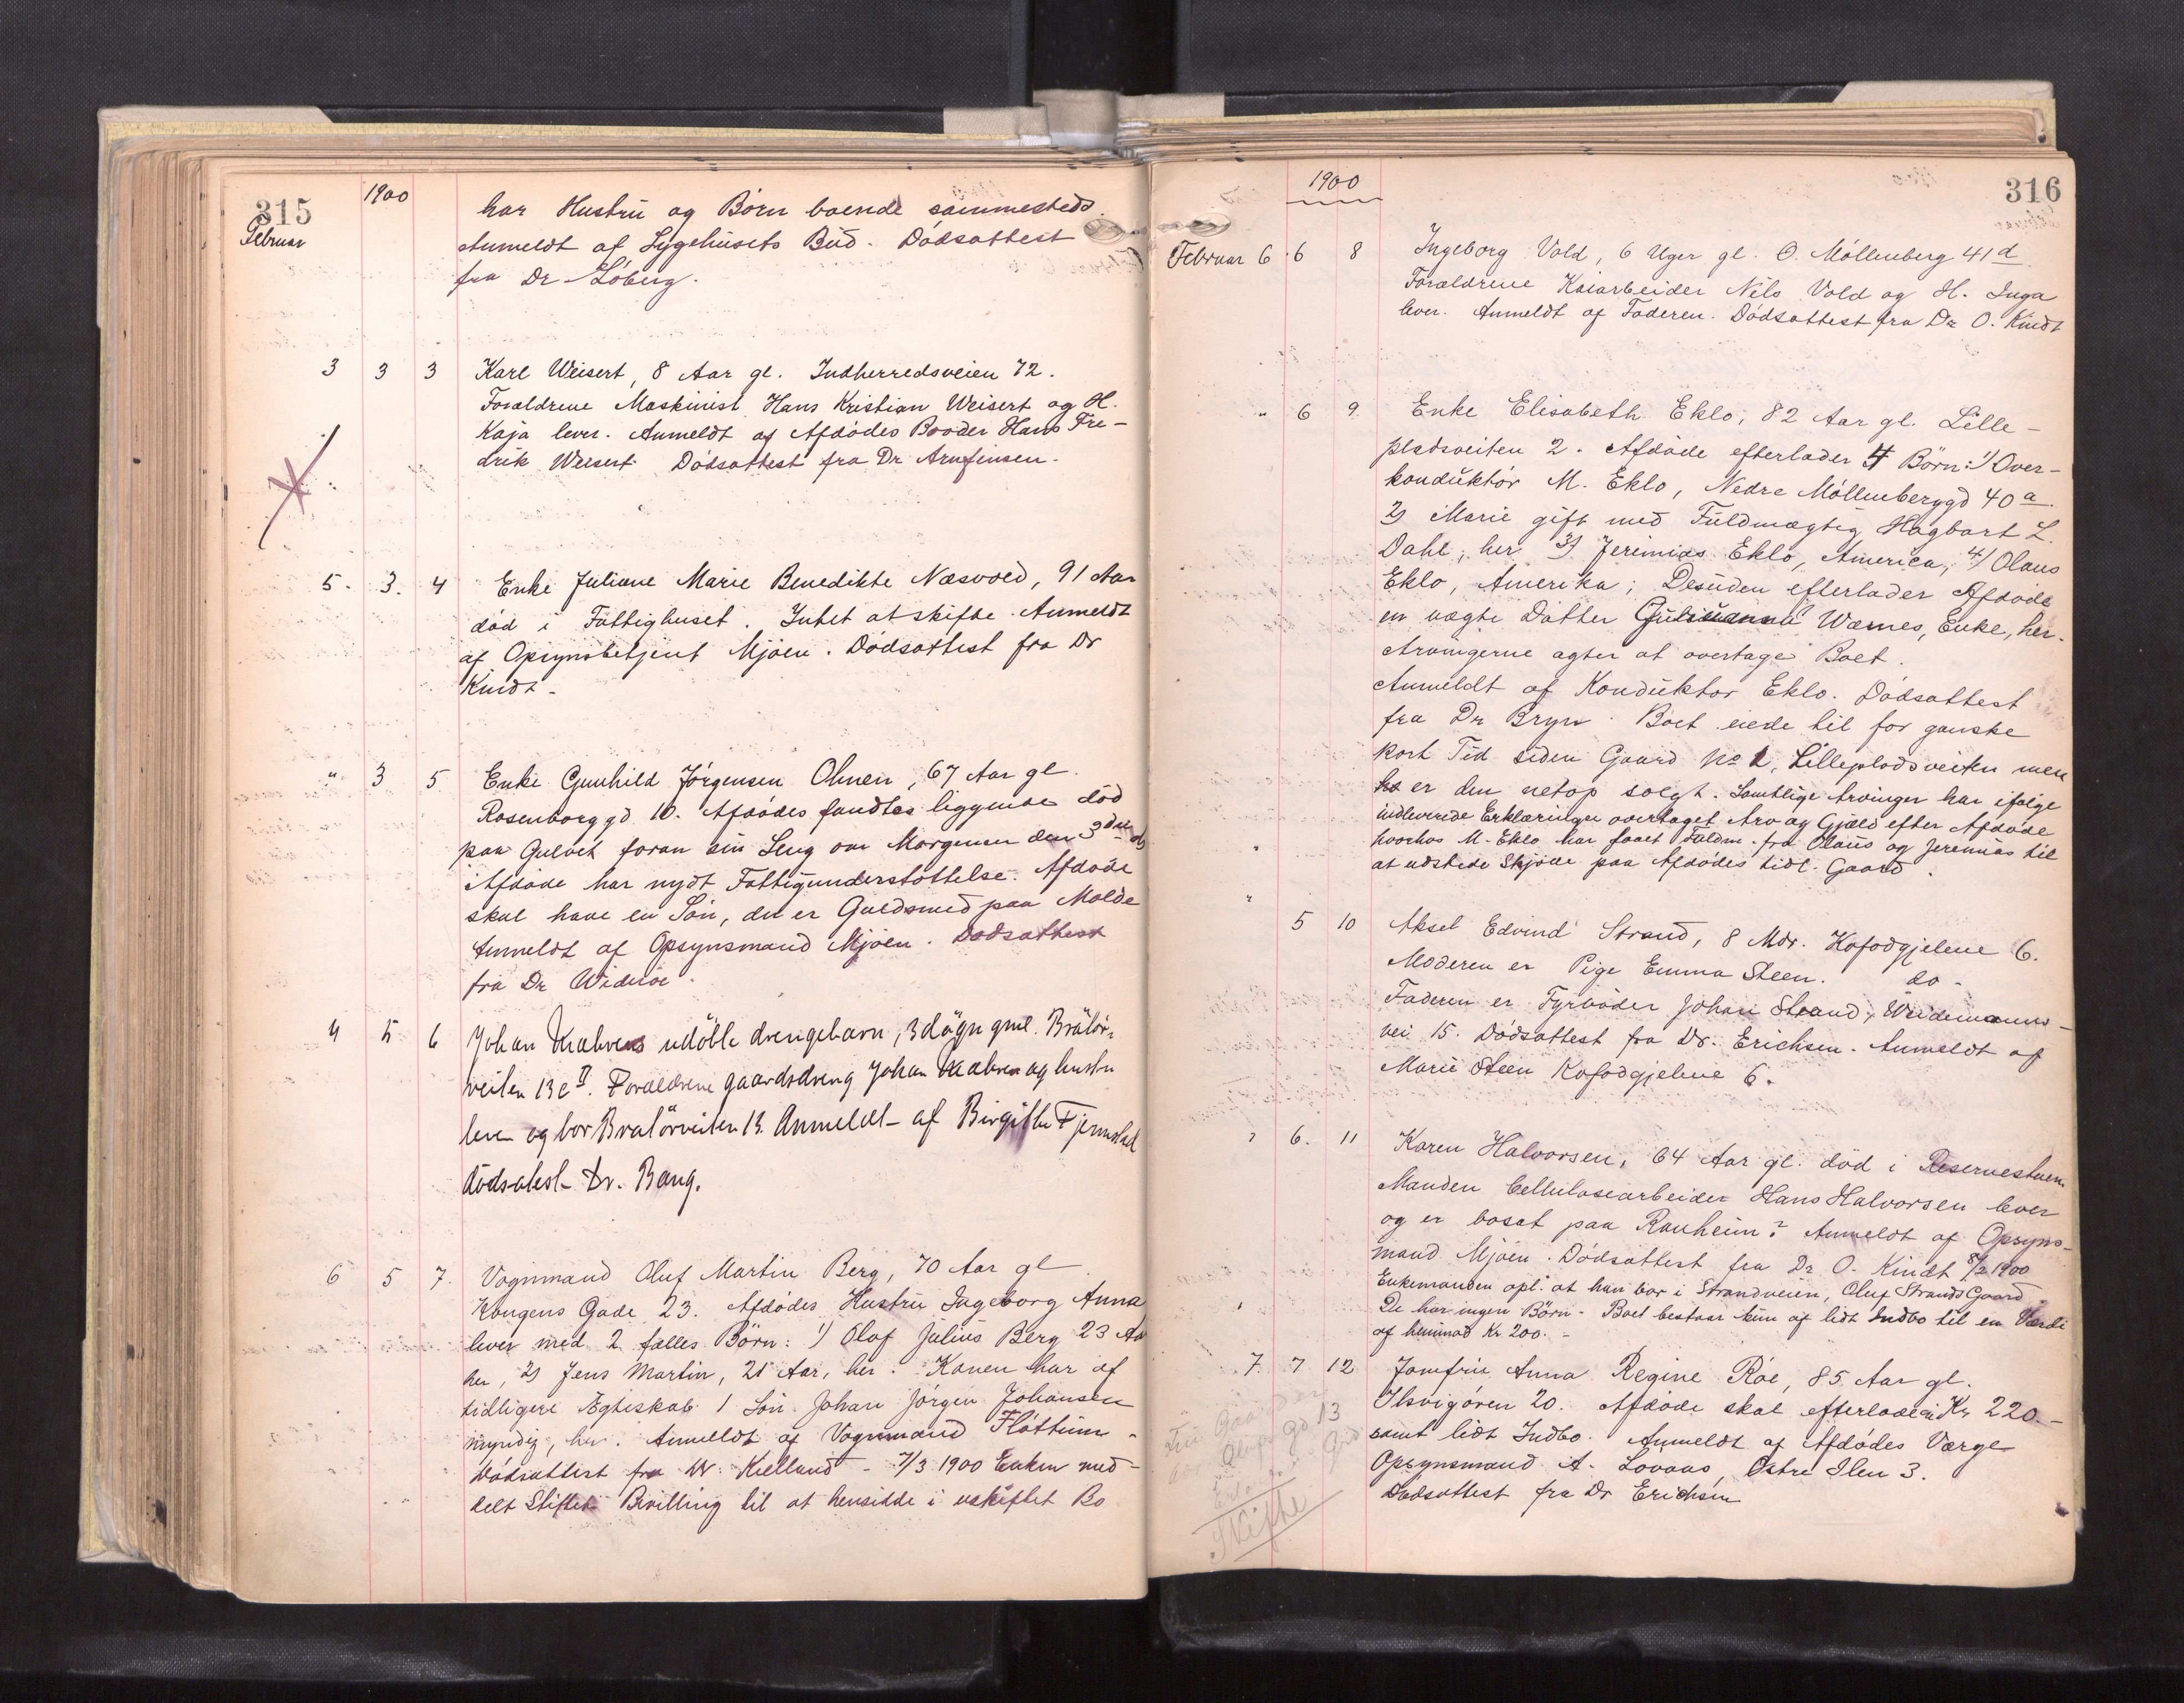 315
1900
Februar
har Hustru og Börn boende sammesteds.
Anmeldt af Sygehusets Bud. Dödsattest
fra Dr Löberg.
3 3 3 Karl Weisert, 8 Aar gl. Indherredsveien 72.
Forældrene Maskinist Hans Kristian Weisert og H.
Kaja lever. Anmeldt af Afdödes Broder Hans Fre-
drik Weisert. Dödsattest fra Dr
5. 3. 4 Enke Juliane Marie Benedikte Næsvold, 91 Aar
död i Fattighuset. Intet at skifte. Anmeldt
af Opsynsbetjent Mjöen. Dödsattest fra Dr
Kindt.
" 3 5 Enke Gunhild Jörgensen Ohnen, 67 Aar gl.
Rosenborggd 10. Afdödes fandtes liggende död
paa Gulvet foran sin Seng om Morgenen den 3die ds
Afdöde har nydt Fattigunderstöttelse. Afdöde
skal have en Sön, der er Guldsmed paa Molde
Anmeldt af Opsynsmand Mjöen. Dödsattest
fra Dr Wideröe.
4 5 6 Johan udöbte drengebarn, 3 dögn gml. Bratör-
veiten 13 c II. Forældrene gaardsdreng Johan og hustru
lever og bor Bratörveiten 13. Anmeldt af Birgitte Fjermstad
dödsatest Dr. Bang.
6 5 7. Vognmand Oluf Martin Berg, 70 Aar gl.
Kongens Gade 23. Afdödes Hustru Ingeborg Anna
lever med 2 fælles Börn: 1) Olaf Julius Berg 23 Aar
her, 2) Jens Martin, 21 Aar, her. Konen har af
tidligere Ægteskab 1 Sön Johan Jörgen Johansen
myndig, her. Anmeldt af Vognmand Flöttum.
Dödsattest fra Dr. Kielland - 7/3 1900 Enken med-
delt Stiftets Bevilling til at hensidde i uskiftet Bo
1900
316
Februar 6 6 8 Ingeborg Vold, 6 Uger gl. O. Möllenberg 41 d.
Forældrene Kaiarbeider Nils Vold og H. Inga
lever. Anmeldt af Faderen. Dödsattest fra Dr O. Kindt
" 6 9. Enke Elisabeth Eklo, 82 Aar gl. Lille-
pladsveiten 2. Afdöde efterlader 4 Börn: 1) Over-
konduktör M. Eklo, Nedre Möllenberggd 40 a.
2) Marie gift med Fuldmægtig Hagbart L.
Dahl, her 3) Jeremias Eklo, America, 4) Olaus
Eklo, Amerika; Desuden efterlader Afdöde
en uægte Datter Wærnes, Enke, her.
Arvingerne agter at overtage Boet.
Anmeldt af Konduktör Eklo. Dödsattest
fra Dr Bryn. Boet eiede til for ganske
kort Tid siden Gaard No 2, Lillepladsveiten men
er den netop solgt. Samtlige Arvinger har ifölge
indleverede Erklæringer overtaget Arv og Gjæld efter Afdöde
hvorhos M. Eklo har faaet Fuldm. fra Olaus og Jeremias til
at udstede Skjöde paa Afdödes tidl. Gaard.
" 5 10 Aksel Edvind Strand, 8 Mdr. Kofodgjelene 6.
Moderen er Pige Emma Steen. do.
Faderen er Fyrböder Johan Strand, Weidemanns-
vei 15. Dödsattest fra Dr. Erichsen. Anmeldt af
Marie Steen Kofodgjelene 6.
" 6. 11 Karen Halvorsen, 64 Aar gl. död i Reservestuen.
Manden Cellulosearbeider Hans Halvorsen lever
og er bosat paa Ranheim? Anmeldt af Opsyns-
mand Mjöen. Dödsattest fra Dr O. Kindt 8/2 1900
Enkemanden opl. at han bor i Strandveien, Oluf Strands Gaard.
De har ingen Börn. Boet bestaar kun af lidt Indbo til en Værdi
af henimod Kr 200.-
7. 7 12 Jomfru Anna Regine Röe, 85 Aar gl.
Ilsvigören 20. Afdöde skal efterlade Kr. 220.-
samt lidt Indbo. Anmeldt af Afdödes Værge
Opsynsmand A. Lövaas, Östre Ilen 3.
Dödsattest fra Dr Erichsen
gd 13
Skifte